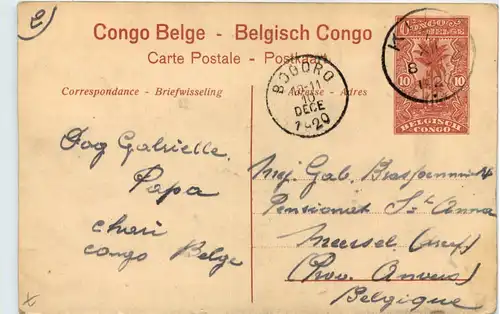 Congo Belge - Belgisch Congo
Carte Postale - Postkaart
Correspondance - Briefwisseling
Adresse - Adres
CONGO
BELGE
10
10
BELGISCH
CONGO
BOGORO
10
DECE
1920
Dag Gabrielle.
Papa
Congo Belge
Mej. Gab.
Pensionat St. Anna
Meersel
(Prov. Anvers)
Belgique